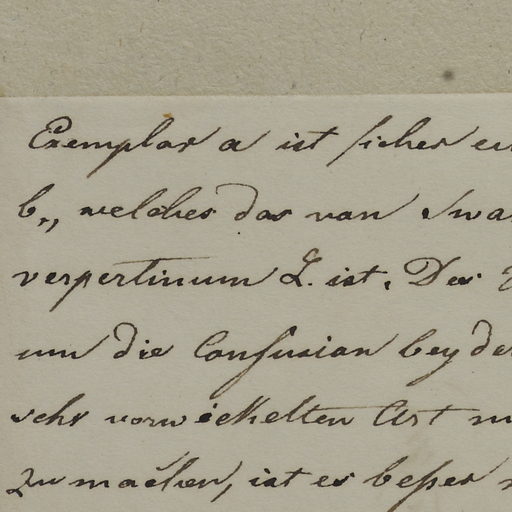 Exemplar a ist sicher
b., welches das von Swa
vespertinum L. ist. Der
um die Confusion beyder
sehr verwickelten Art
zu machen, ist es beßer